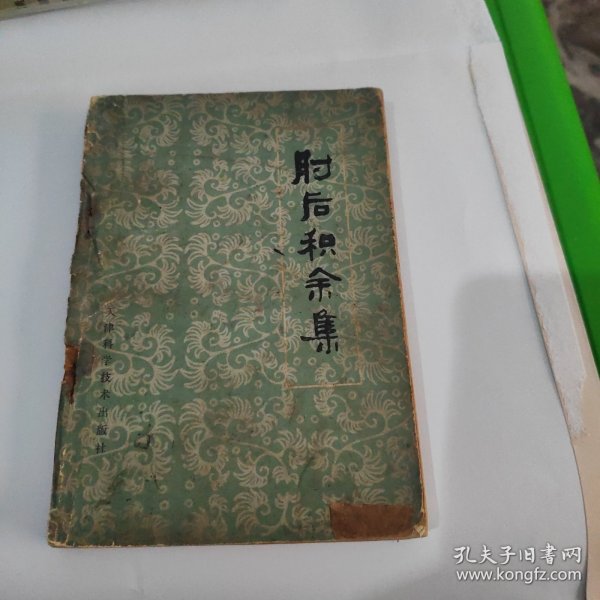 肘后积余集
天津科学技术出版社
孔夫子旧书网
www.kongfz.com